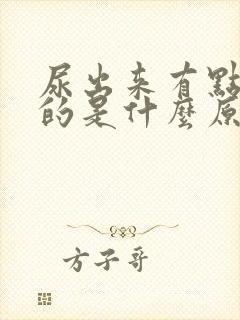 尿出来有點
的是什麼原
方子哥